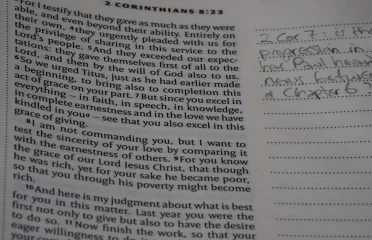 2 CORINTHIANS 8:22
For I testify that they gave as much as they were
able, and even beyond their ability. Entirely on
their own, ⁴they urgently pleaded with us for
the privilege of sharing in this service to the
Lord's people. ⁵And they exceeded our expec-
tations: they gave themselves first of all to the
Lord, and then by the will of God also to us.
⁶So we urged Titus, just as he had earlier made
a beginning, to bring also to completion this
act of grace on your part. ⁷But since you excel in
everything – in faith, in speech, in knowledge,
in complete earnestness and in the love we have
kindled in you – see that you also excel in this
grace of giving.
⁸I am not commanding you, but I want to
test the sincerity of your love by comparing it
with the earnestness of others. ⁹For you know
the grace of our Lord Jesus Christ, that though
he was rich, yet for your sake he became poor,
so that you through his poverty might become
rich.
¹⁰And here is my judgment about what is best
for you in this matter. Last year you were the
first not only to give but also to have the desire
to do so. ¹¹Now finish the work, so that your
eager willingness to do
2 Cor 7: is th
progression in
Paul hear
news
Chapter 6